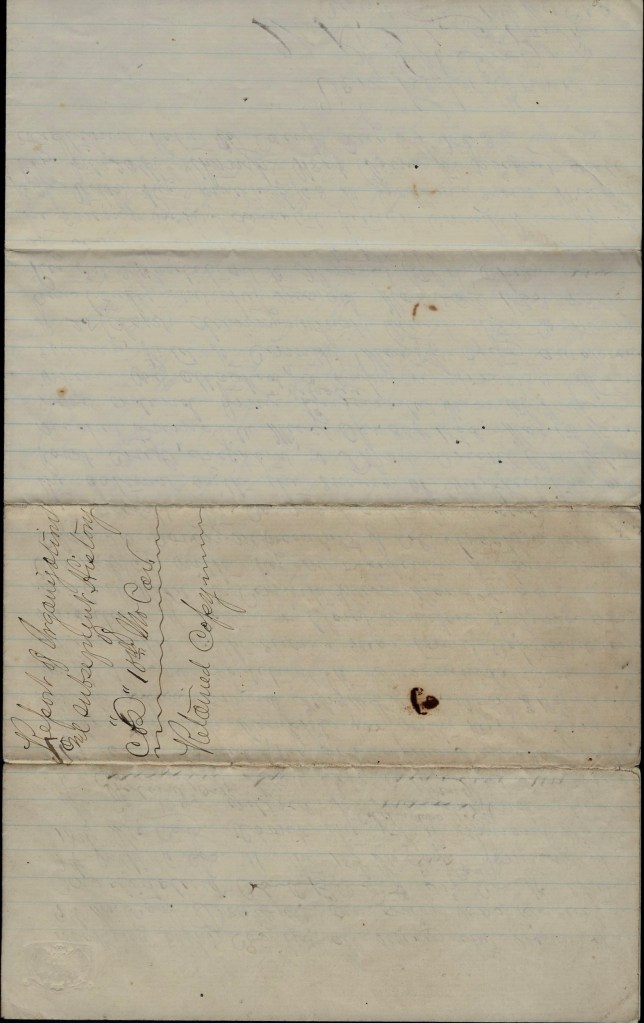 Report of Organization
& subsequent History
of
Co "D" 10th Mo Cav
Retained Copy